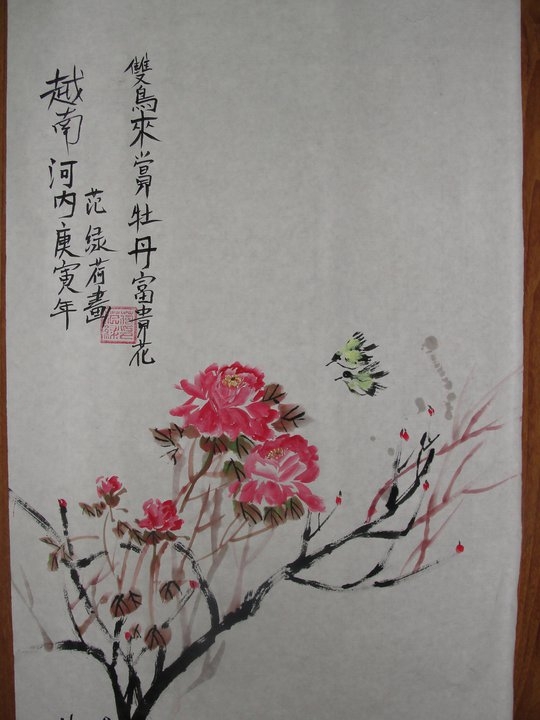 雙鳥來賞牡丹富貴花
范緑荷畵
越南河内庚寅年